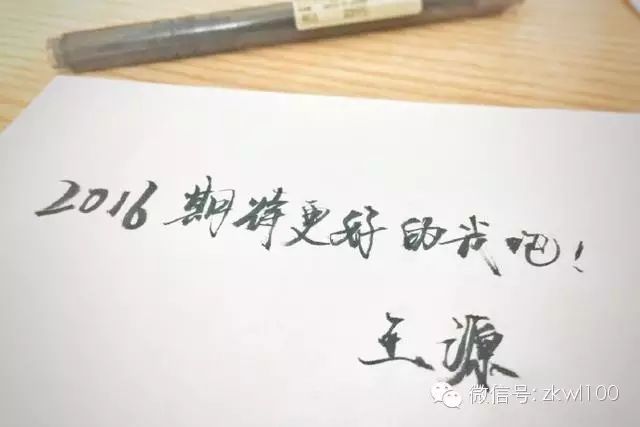 2016 期待更好的我吧！
王源
微信号: zkwl100